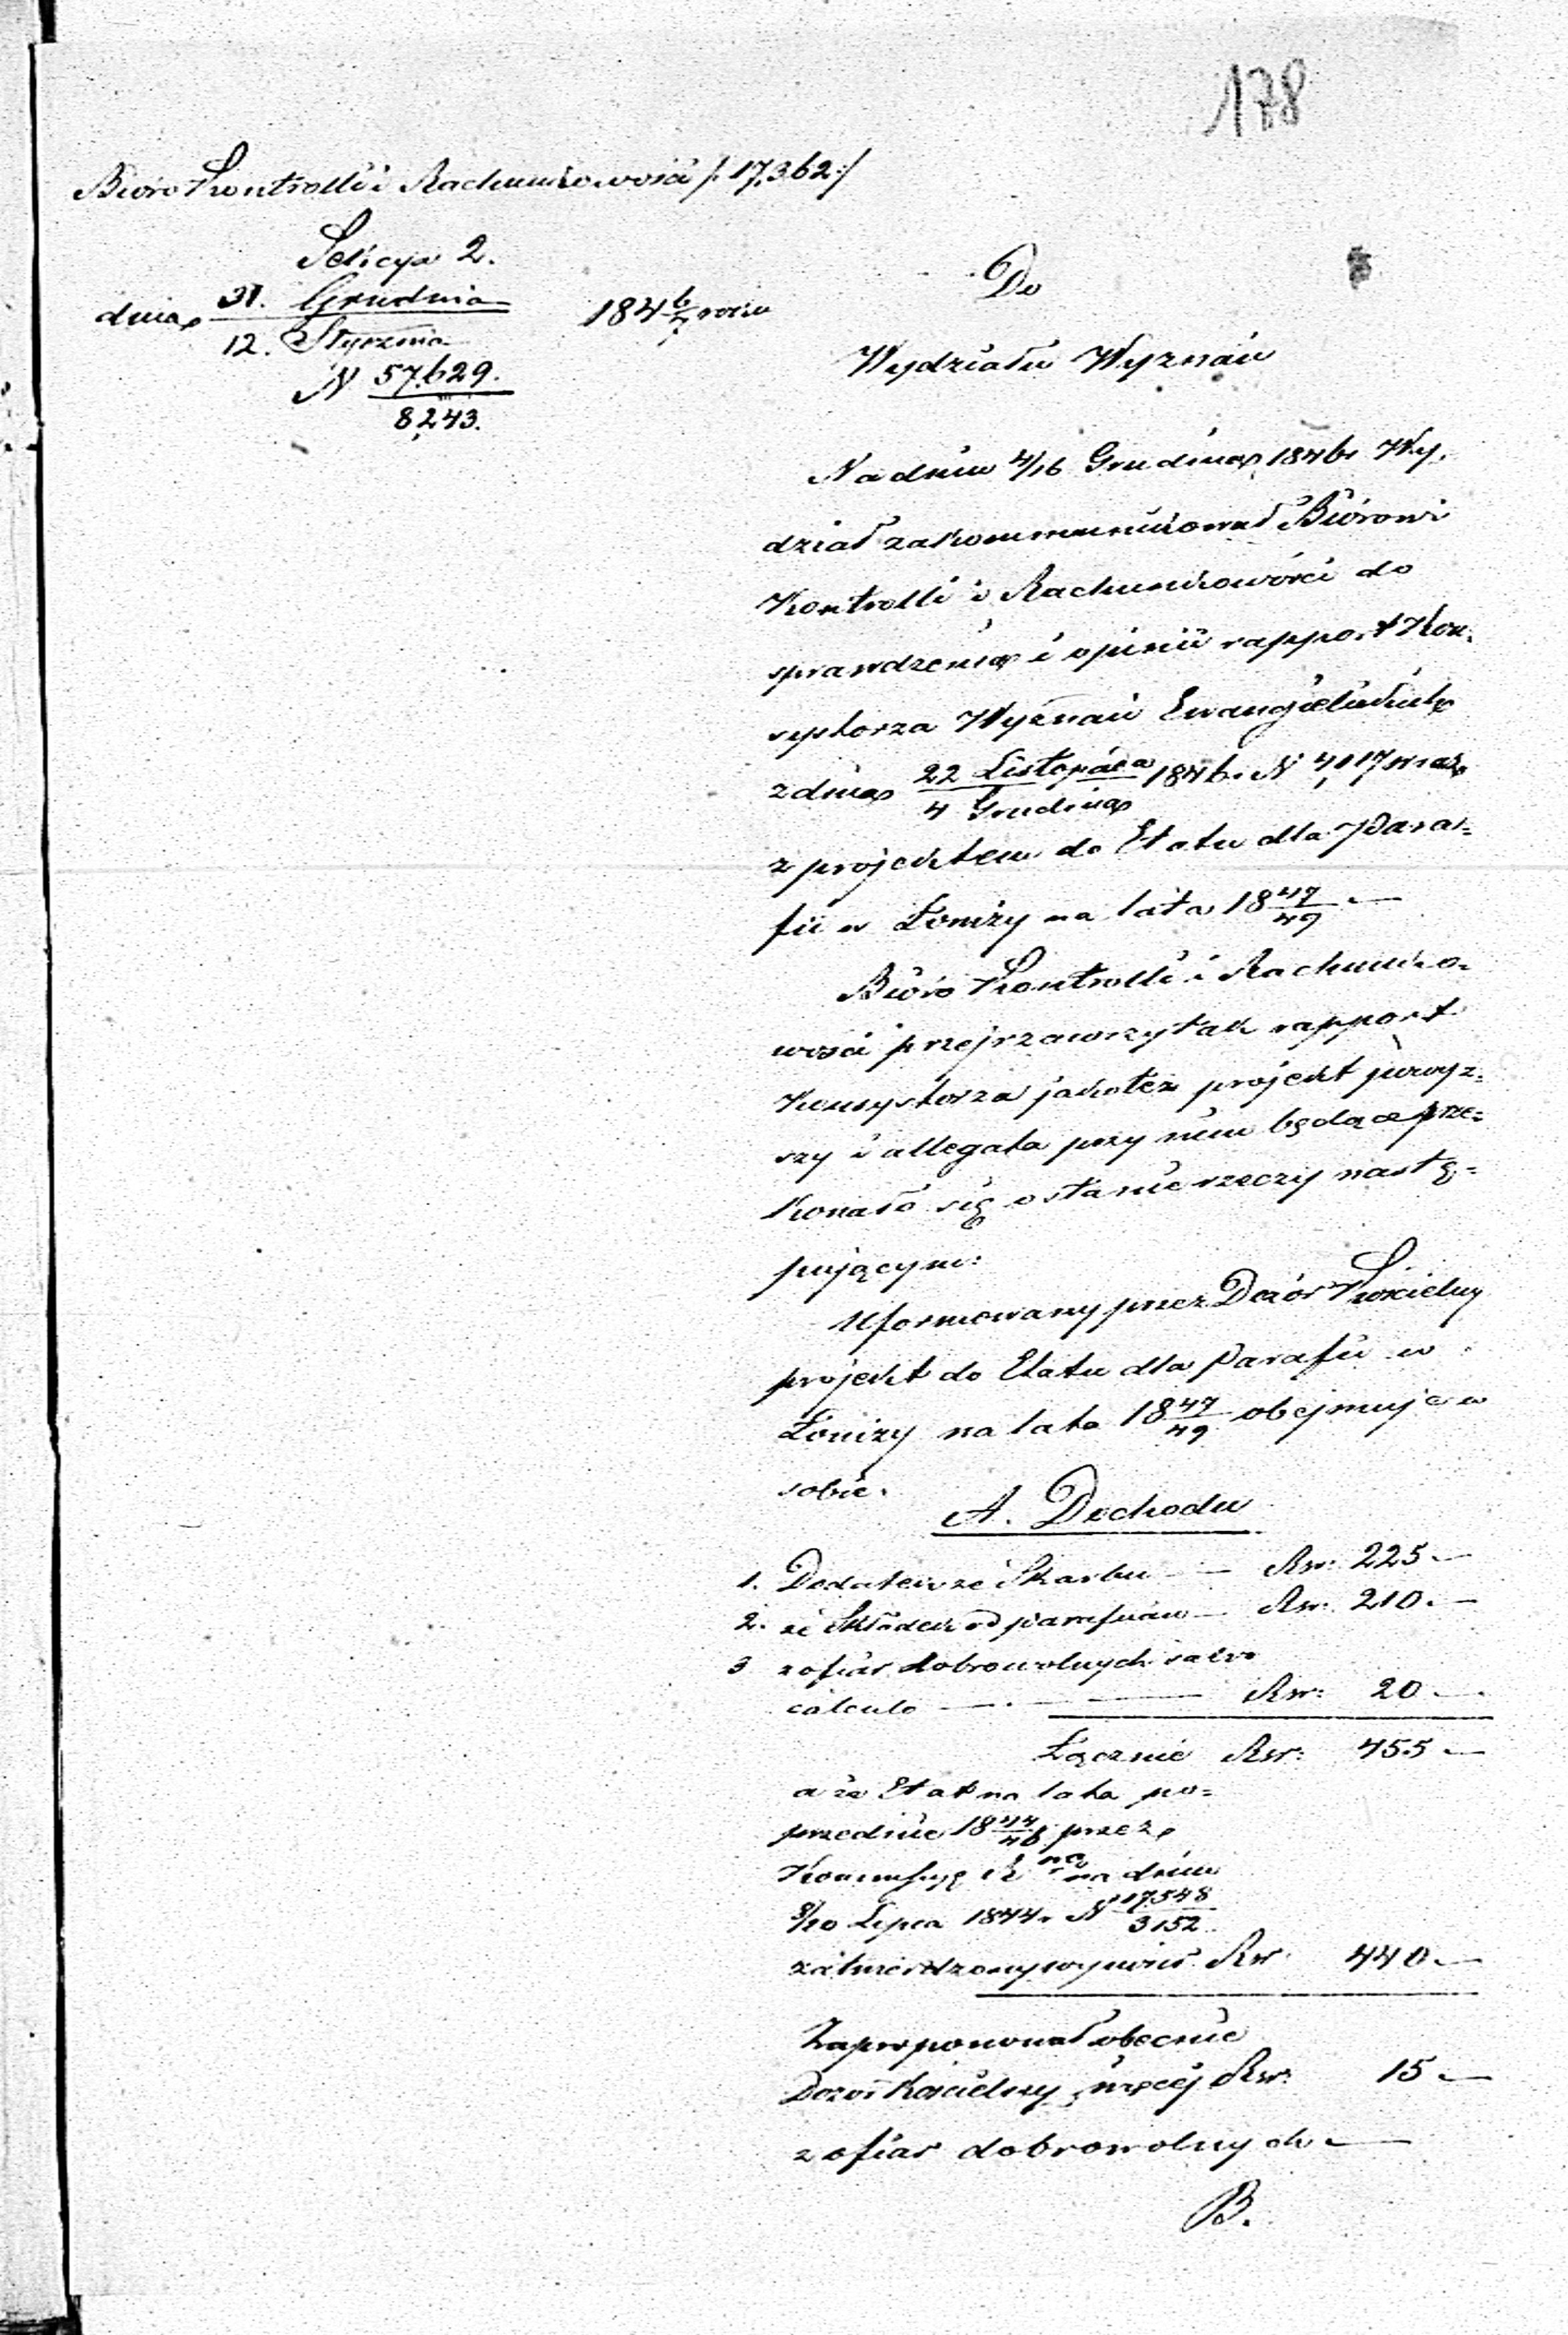 178
Bióro Kontrolli i Rachunkowości /: 17,362 :/
Sekcya 2.
dnia 31. Grudnia / 12. Stycznia 184 6/7 roku
N 57,629. / 8,243.
Do
Wydziału Wyznań
Na dniu 4/16 Grudnia 1846 r. Wy-
dział zakommunikował Biórowi
Kontrolli i Rachunkowości do
sprawdzenia i opinii rapport Kon-
systorza Wyznań Ewangielickich
z dnia 22 Listopada / 4 Grudnia 1846 r. N 4,117 wraz
z projektem do Etatu dla Para=
fii w Łomży na lata 18 47/49 —
Bióro Kontrolli i Rachunko=
wości przejrzawszy tak rapport
Konsystorza jakoteż projekt powyż=
szy i allegata przy nim będące prze=
konało się o stanie rzeczy nastę=
pującym:
Uformowany przez Dozór Kościelny
projekt do Etatu dla Parafii w
Łomży na lata 18 47/49 obejmuje w
sobie.
A. Dochodu
1. Dodatek ze Skarbu — Rsr: 225 —
2. ze Składek od parafian — Rsr: 210. —
3 z ofiar dobrowolnych salvo
calculo — . — — Rsr: 20 —
Łącznie Rsr: 455 —
a że Etat na lata po=
przednie 18 44/46 przez
Kommissyę R na dniu
8/20 Lipca 1844 r. N 17548 / 3152
zatwierdzony wynosił Rsr 440 —
Zaproponował obecnie
Dozór Kościelny więcej Rsr: 15 —
z ofiar dobrowolnych —
B.